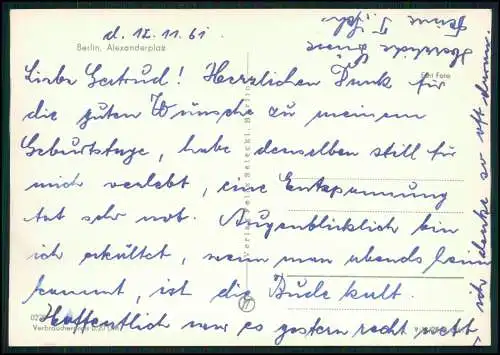 d. 12.11.61
Berlin, Alexanderplatz
Liebe Gertrud! Herzlichen Dank für
die guten Wünsche zu meinem
Geburtstage, habe denselben still für
mich verlebt, eine Entspannung
tat sehr not. Augenblicklich bin
ich erkältet, wenn man abends heim
kommt, ist die Bude kalt.
Hoffentlich war es gestern recht nett
, ich denke so oft daran.
Herzliche Grüße
Deine
Echt Foto
Verlag Felix Setecki, Berlin